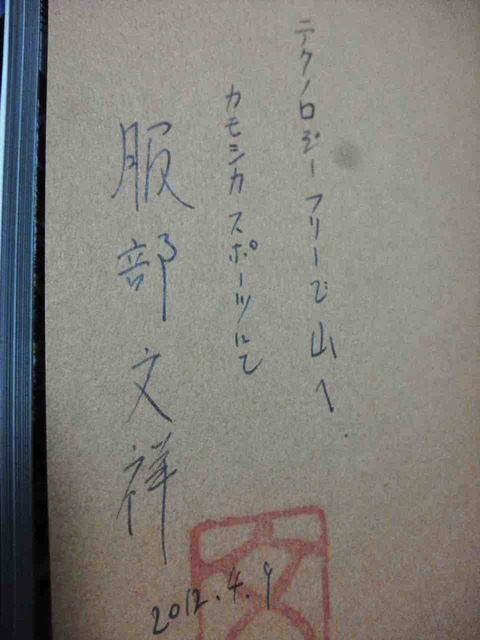 テクノロジーフリーで山へ
カモシカスポーツにて
服部文祥
2012.4.9